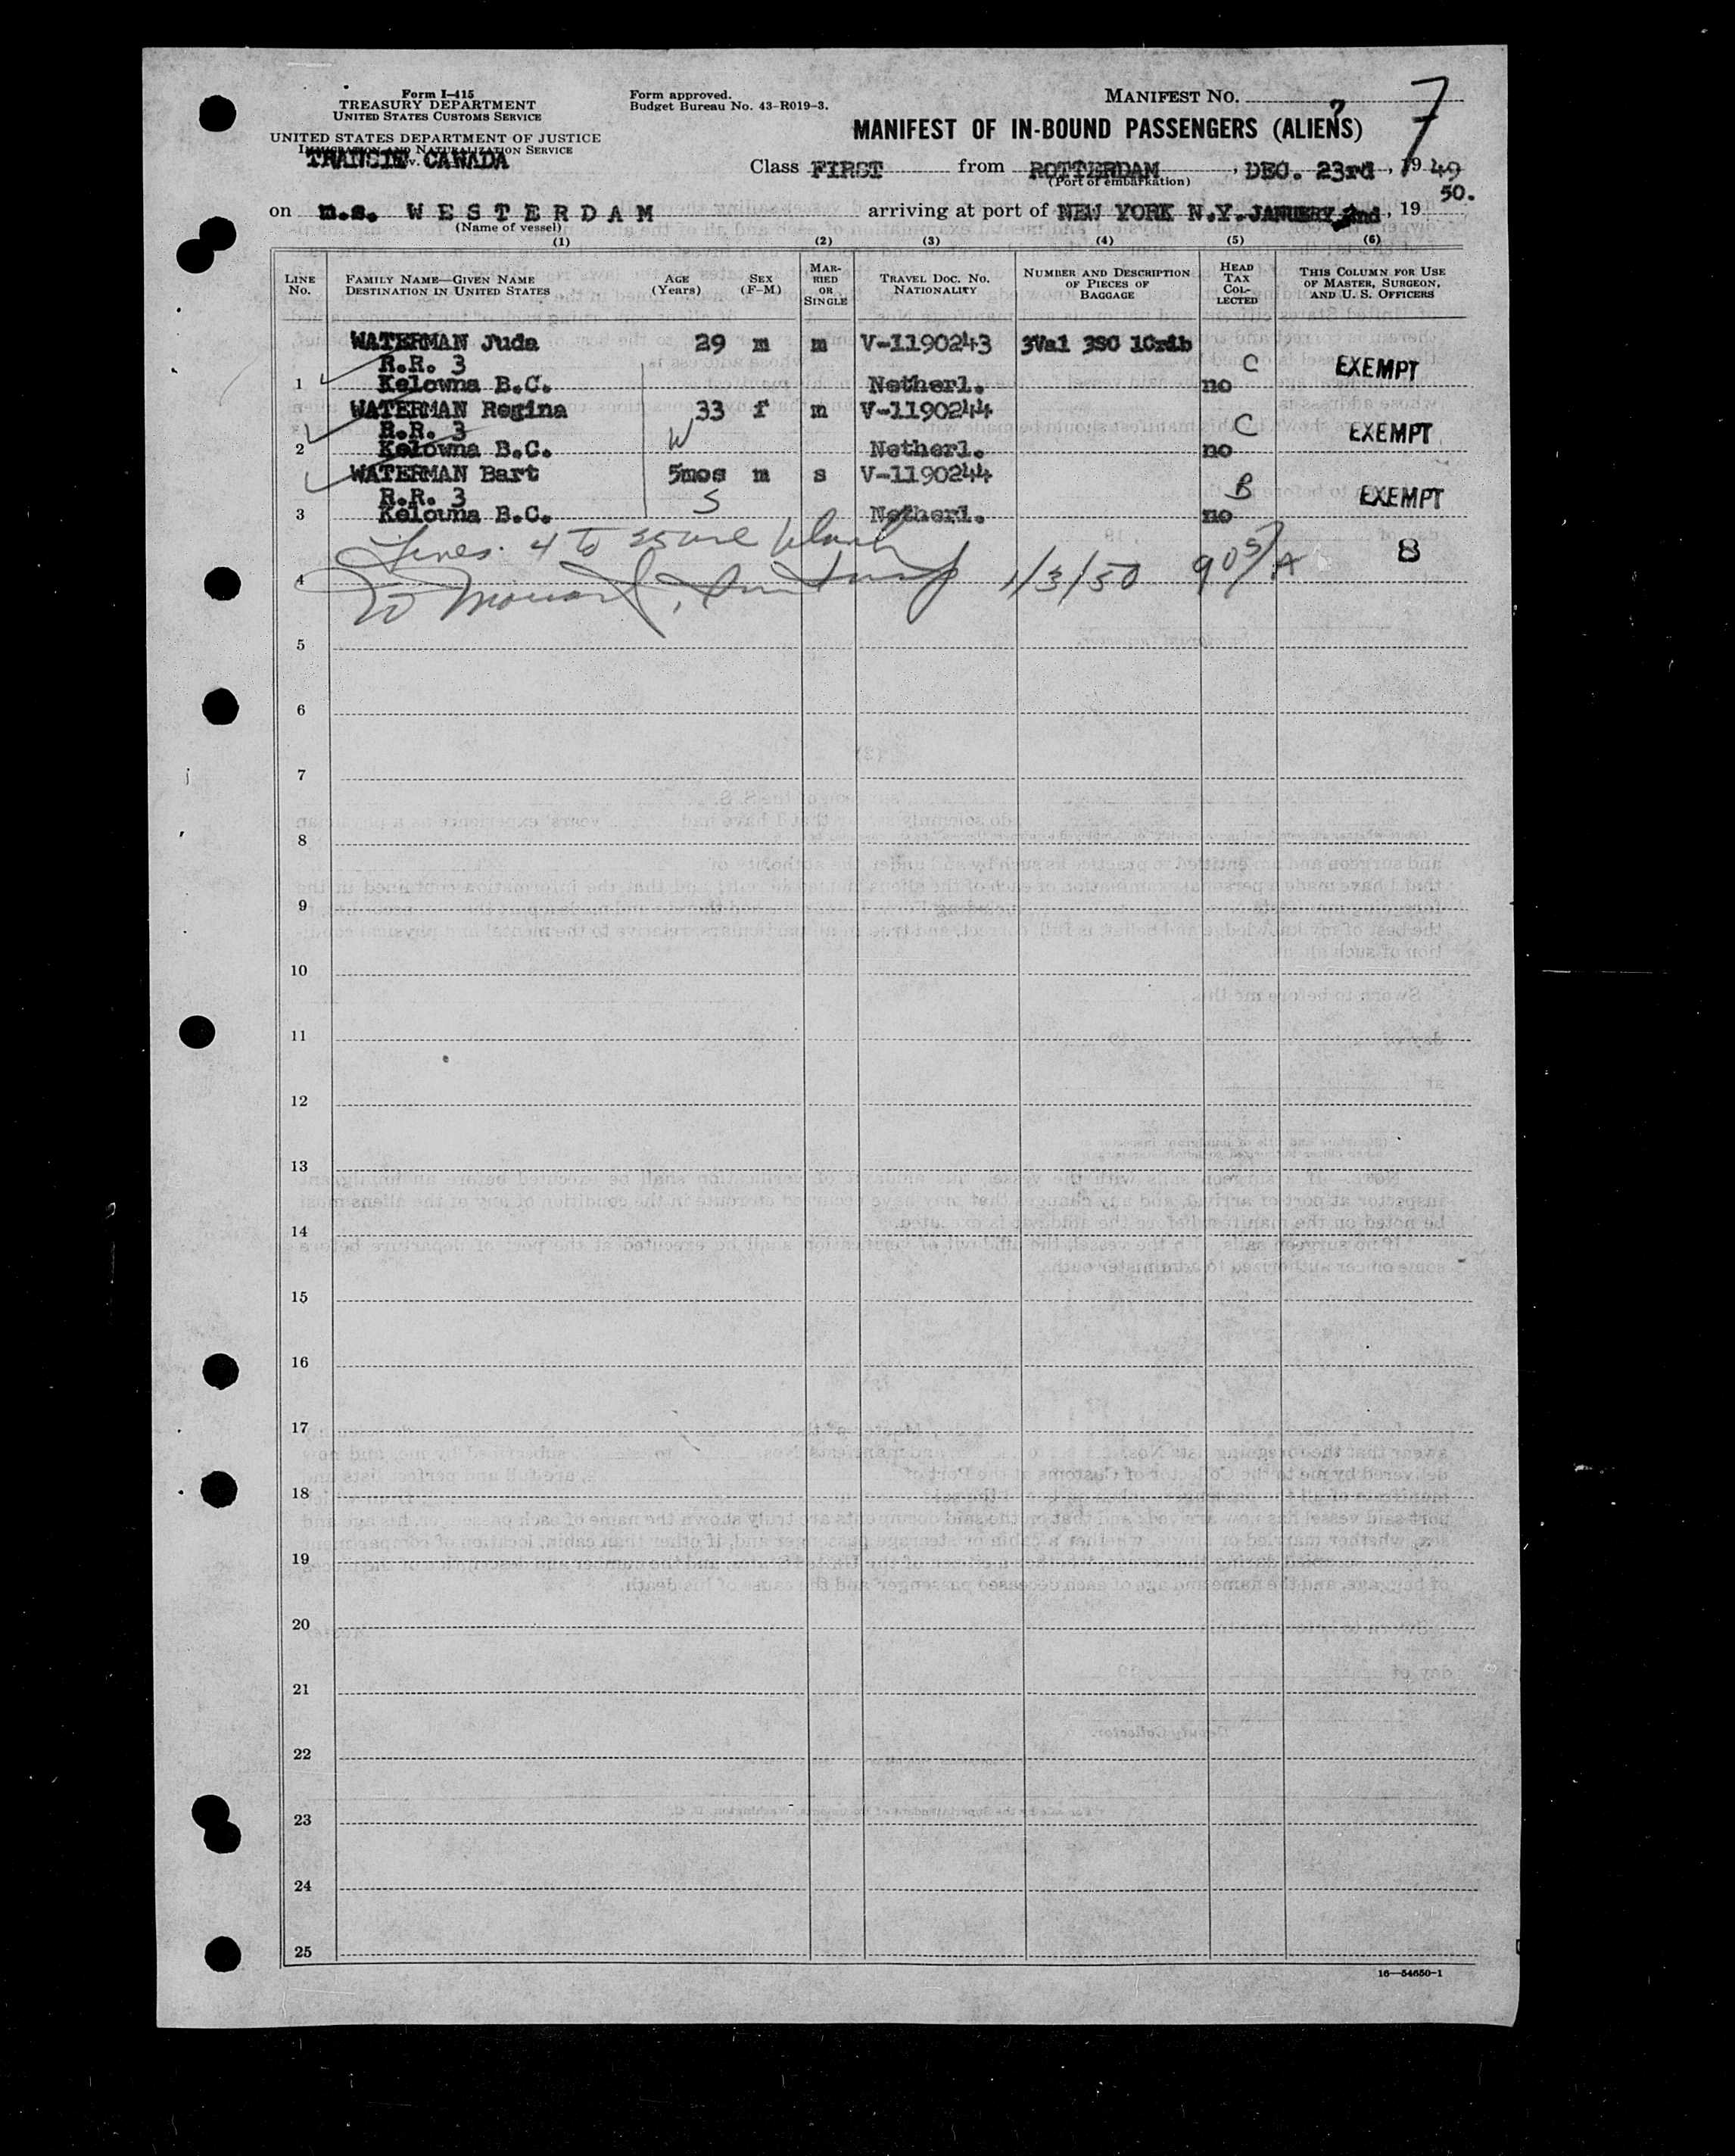 Form I-415
TREASURY DEPARTMENT
UNITED STATES CUSTOMS SERVICE
UNITED STATES DEPARTMENT OF JUSTICE
IMMIGRATION AND NATURALIZATION SERVICE
TRANSIT CANADA
Form approved.
Budget Bureau No. 43-R019-3.
MANIFEST NO. 7
MANIFEST OF IN-BOUND PASSENGERS (ALIENS)
Class FIRST from ROTTERDAM, DEC. 23rd, 1949
(Port of embarkation)
on m.s. WESTERDAM arriving at port of NEW YORK N.Y. JANUERY 2nd, 19 50.
(Name of vessel)
(1) (2) (3) (4) (5) (6)
LINE No. FAMILY NAME—GIVEN NAME DESTINATION IN UNITED STATES AGE (Years) SEX (F–M) MARRIED OR SINGLE TRAVEL DOC. NO. NATIONALITY NUMBER AND DESCRIPTION OF PIECES OF BAGGAGE HEAD TAX COLLECTED THIS COLUMN FOR USE OF MASTER, SURGEON, AND U. S. OFFICERS
WATERMAN Juda 29 m m V-1190243 3Val 3SC 1Crib
R.R. 3 C EXEMPT
1 Kelowna B.C. Netherl. no
WATERMAN Regina 33 f m V-1190244
R.R. 3 W C EXEMPT
2 Kelowna B.C. Netherl. no
WATERMAN Bart 5mos m s V-1190244
R.R. 3 S B EXEMPT
3 Kelouna B.C. Netherl. no
Lines 4 to 25 are blank 8
4 1/3/50
5
6
7
8
9
10
11
12
13
14
15
16
17
18
19
20
21
22
23
24
25
16—54650-1